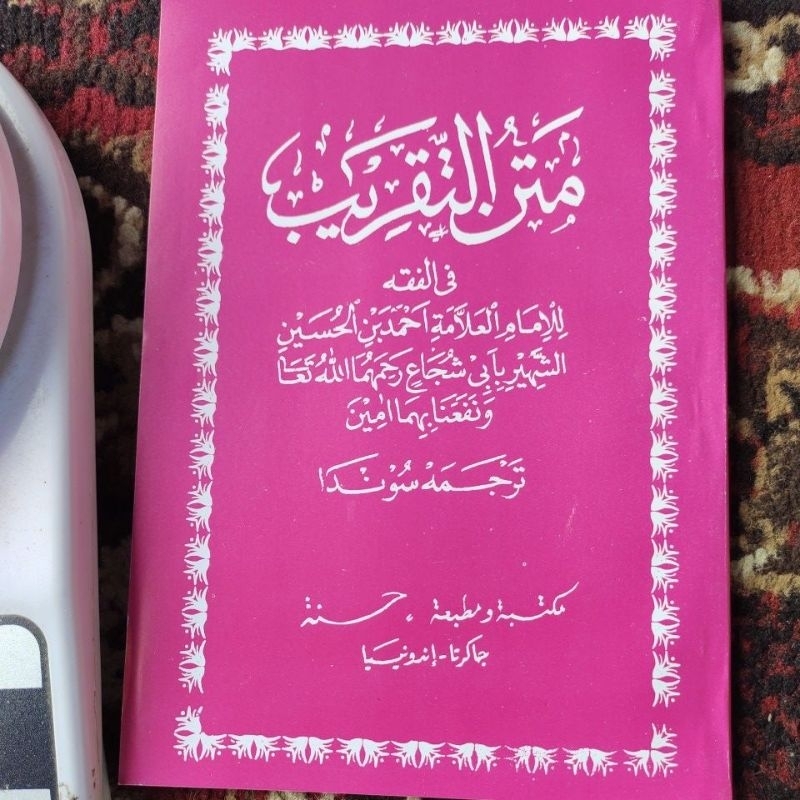 مَتْنُ التَّقْرِيْبِ
فى الفقه
لِلْإِمَامِ الْعَلَّامَةِ اَحْمَدَ بْنِ الْحُسَيْنِ
الشَّهِيْرِ بِاَبِىْ شُجَاعٍ رَحِمَهُمَا اللّٰهُ تَعَا
وَنَفَعَنَا بِهِمَا اٰمِيْنَ
تَرْجَمَهْ سُوْنْدَا
مكتبة و مطبعة، حسنة
جاكرتا - إندونيسيا